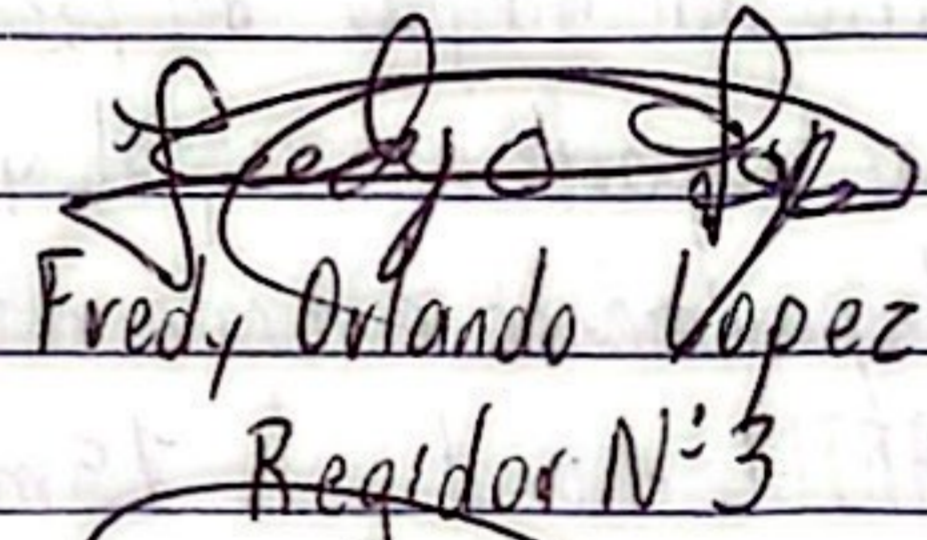 Fredy O Lopez
Fredy Orlando Lopez
Regidor N: 3